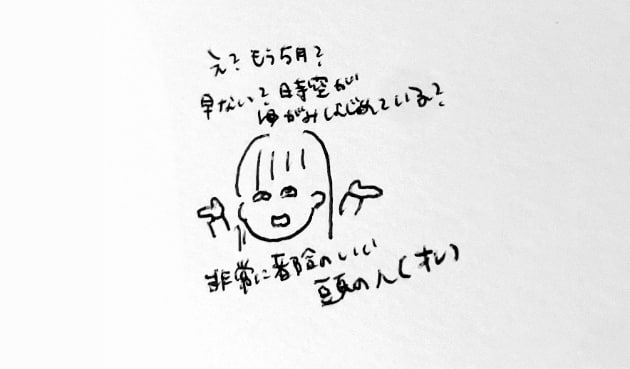 え？もう5月？
早ない？時空が
ゆがみはじめている？
非常に都合のいい
頭の人(オレ)